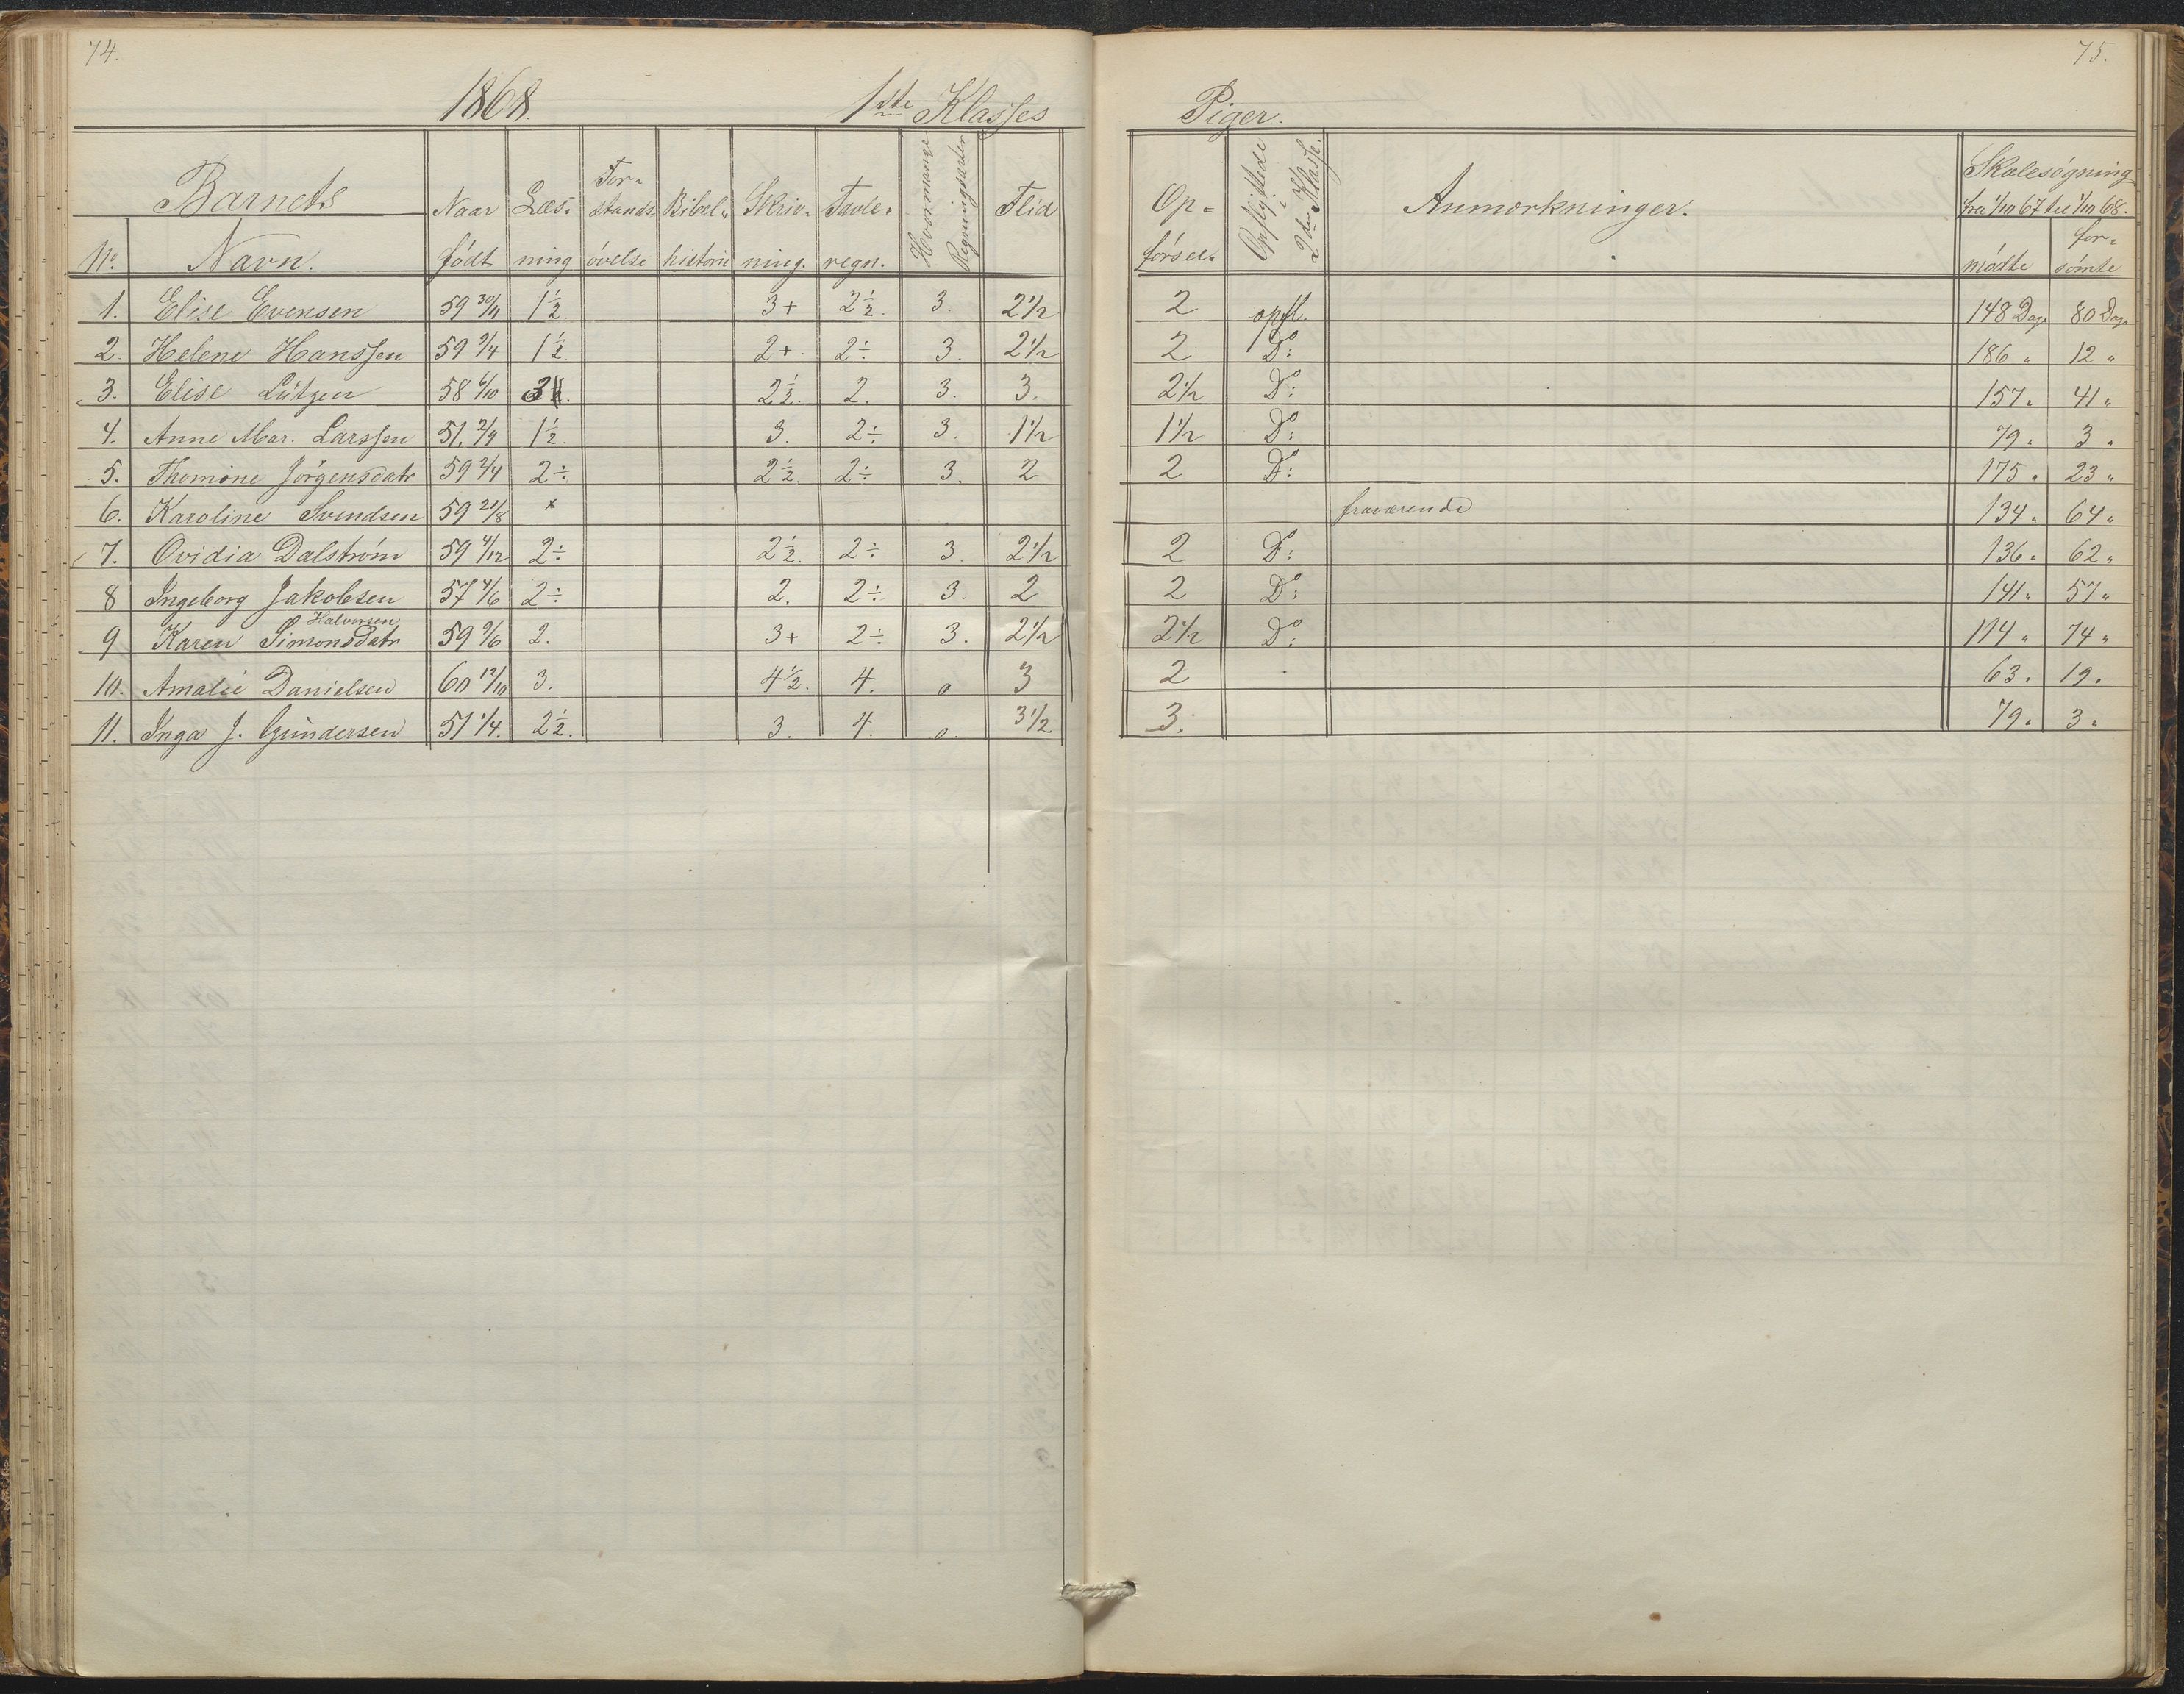 74.
75.
1868. 1ste Klasses Piger.
Barnets
No. Navn. Naar født Læsning Forstandsøvelse Bibelhistorie Skrivning. Tavleregn. Hvormange Regningsarter Flid Opførsel. Opflyttede i 2den Klasse. Anmærkninger. Skolesøgning fra 1/10 67 til 1/10 68. mødte forsømte
1. Elise Evensen 59 30/11 1½. 3+ 2½. 3. 2½ 2 opfl. 148 Dage 80 Dage
2. Helene Hanssen 59 9/4 1½. 2+. 2÷ 3. 2½ 2 Do: 186 " 12 "
3. Elise Lützen 58 6/10 3. 2½. 2. 3. 3. 2½ Do: 157 " 41 "
4. Anne Mar. Larssen 51. 2/9 1½. 3. 2÷ 3. 1½ 1½ Do: 79 " 3 "
5. Thomine Jörgensdatr 59 2/4 2÷ 2½. 2÷ 3. 2 2 Do: 175 " 23 "
6. Karoline Svendsen 59 21/8 x fraværende 134 " 64 "
7. Ovidia Dalström 59 4/12 2÷ 2½. 2÷ 3. 2½ 2 Do: 136 " 62 "
8 Ingeborg Jakobsen 57 4/6 2÷ 2. 2÷ 3. 2 2 Do: 141 " 57 "
Halvorsen
9 Karen Simonsdatr 59 9/6 2. 3+ 2÷ 3. 2½ 2½ Do: 114 " 74 "
10. Amalie Danielsen 60 12/10 3. 4½. 4. 0 3 2 63 " 19 "
11. Inga J. Gundersen 51 1/4. 2½. 3. 4. 0. 3½ 3. 79 " 3 "